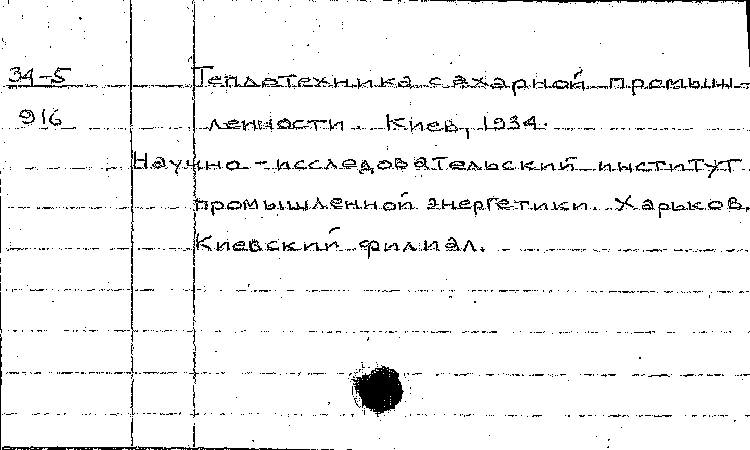 34-5 Теплотехника сахарной промыш-
916 ленности. Киев, 1934.
Научно-исследовательский институт
промышленной энергетики. Харьков.
Киевский филиал.